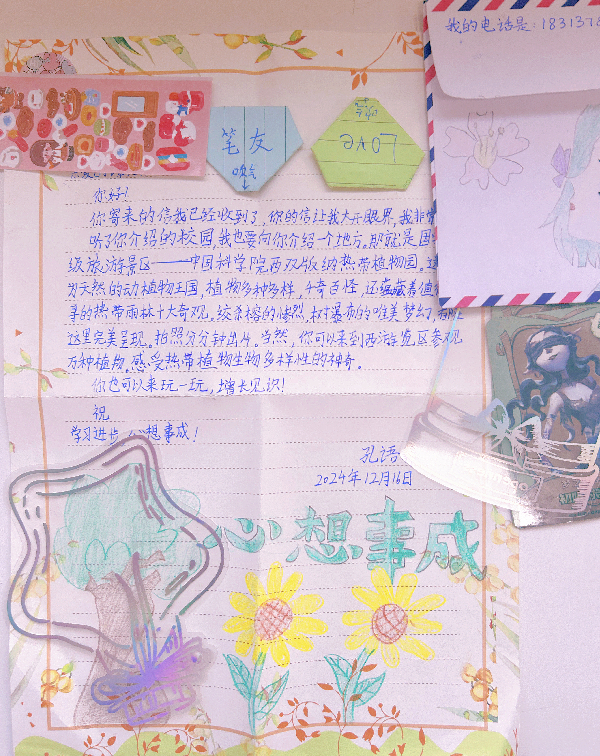 我的电话是：1831378
笔友
LOVE
你好！
你寄来的信我已经收到了，你的信让我大开眼界，我非常
听了你介绍的校园，我也要向你介绍一个地方。那就是国
级旅游景区——中国科学院西双版纳热带植物园。这
为天然的动植物王国，植物多种多样，千奇百怪，还蕴藏着值
寻的热带雨林十大奇观。绞杀榕的惨烈，树瀑布的唯美梦幻，
这里完美呈现。拍照分分钟出片。当然，你可以来到西游览区参观
万种植物，感受热带植物生物多样性的神奇。
你也可以来玩一玩，增长见识！
祝
学习进步 心想事成！
孔语
2024年12月16日
心想事成